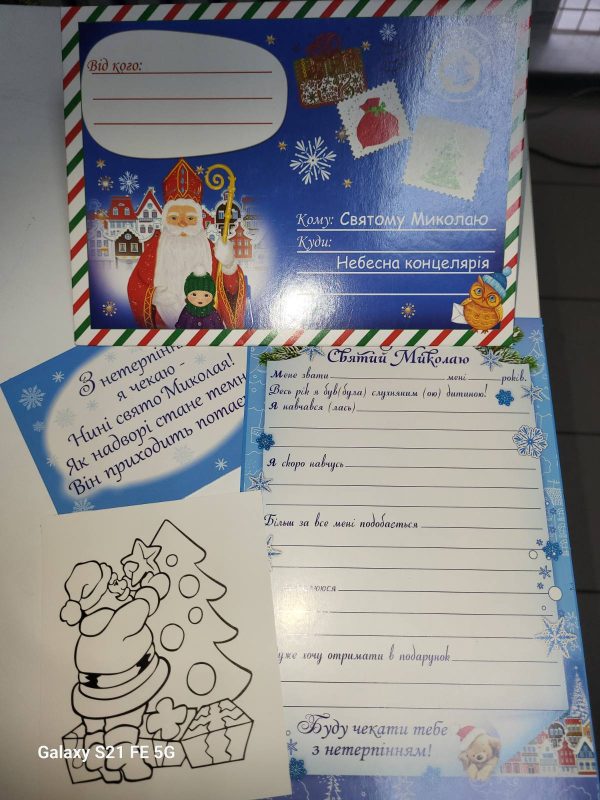 Від кого:
Кому: Святому Миколаю
Куди:
Небесна концелярія
З
я чекаю -
Нині свято Миколая!
Як надворі стане
Він приходить
Святий Миколаю
Мене звати мені років.
Весь рік я був(була) слухняним (ою) дитиною!
Я навчався (лась)
Я скоро навчусь
Більш за все мені подобається
хочу отримати в подарунок
Буду чекати тебе
з нетерпінням!
Galaxy S21 FE 5G